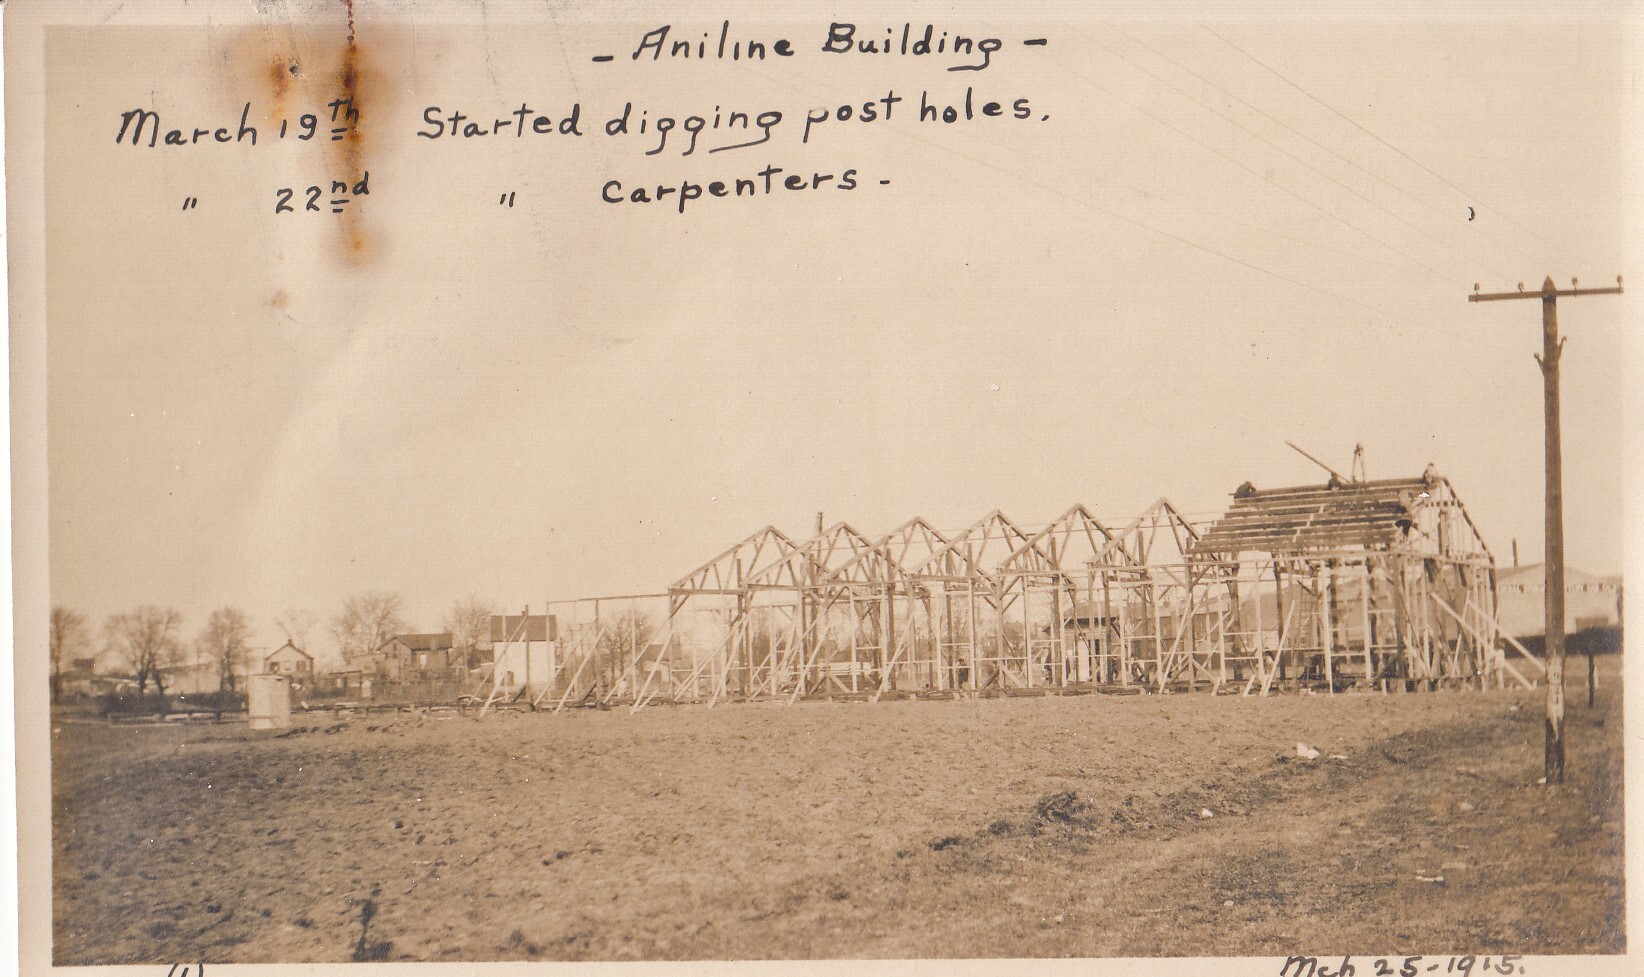 - Aniline Building -
March 19th Started digging post holes.
" 22nd " Carpenters -
(1)
Mch 25-1915.